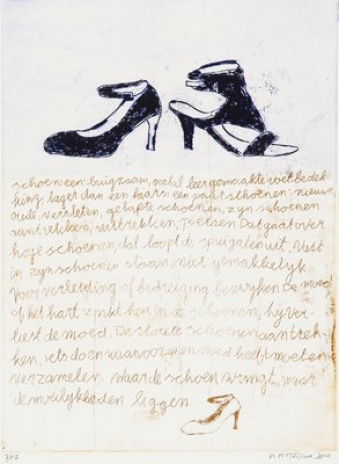 schoen: een buigzaam, veelal leer gemaakte voetbedek-
king, lager dan een laars: een paar schoenen: nieuwe,
oude, versleten, gelapte schoenen, zijn schoenen
aantrekken, uittrekken, poetsen Dat gaat over
hoge schoenen, dat loopt de spuigaten uit, Vast
in zijn schoenen staan: niet gemakkelijk
voor verleiding of bedreiging bezwijken De moed
of het hart zinkt hem in de schoenen, hij ver-
liest de moed. De stoute schoenen aantrek-
ken, iets doen waarvoor men moed heeft moeten
verzamelen. waar de schoen wringt, waar
de moeilijkheden liggen